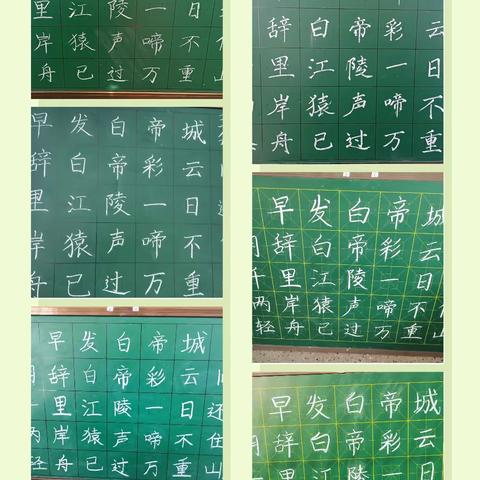 里江陵一日
岸猿声啼不
舟已过万重山
早发白帝城
辞白帝彩云
里江陵一日
岸猿声啼不
舟已过万重
早发白帝城
辞白帝彩云
里江陵一日还
两岸猿声啼不住
轻舟已过万重山
辞白帝彩云
里江陵一日
岸猿声啼不
舟已过万重
早发白帝城
辞白帝彩云
千里江陵一日
两岸猿声啼不
轻舟已过万重山
早发白帝城
辞白帝彩云
里江陵一日